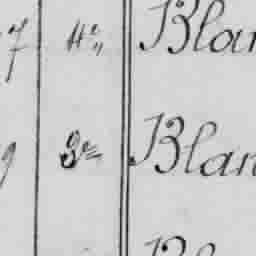 7 4e Blan
9 3e Blan
Bl